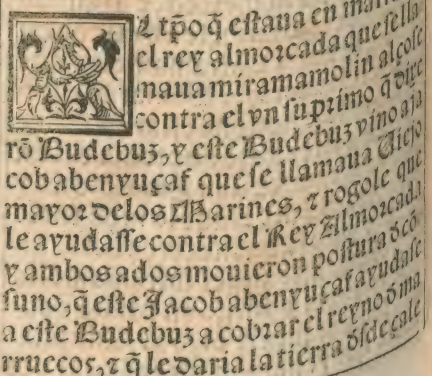 L tp̃o q̃ estaua en marr
el rey almorcada que se lla
maua miramamolin alçose
contra el vn su primo q̃ dixe
rõ Budebuz, y este Budebuz vino a ja
cob abenyuçaf que se llamaua Uiejo
mayor delos Marines, ⁊ rogole que
le ayudasse contra el Rey Almorcada
y ambos ados mouieron postura đ cõ
suno, q̃ este Jacob abenyuçaf ayudase
a este Budebuz a cobrar el reyno đ ma
rruecos, ⁊ q̃ le daria la tierra đsde çale